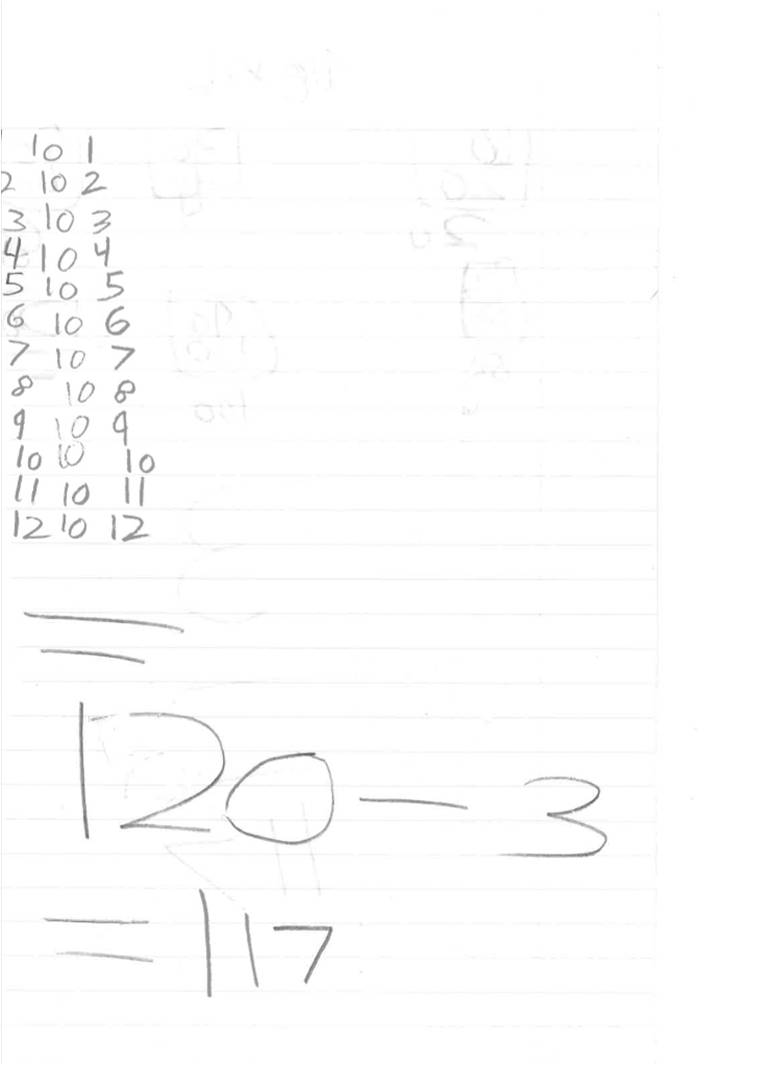 10 1
2 10 2
3 10 3
4 10 4
5 10 5
6 10 6
7 10 7
8 10 8
9 10 9
10 10 10
11 10 11
12 10 12
=
120 - 3
= 117